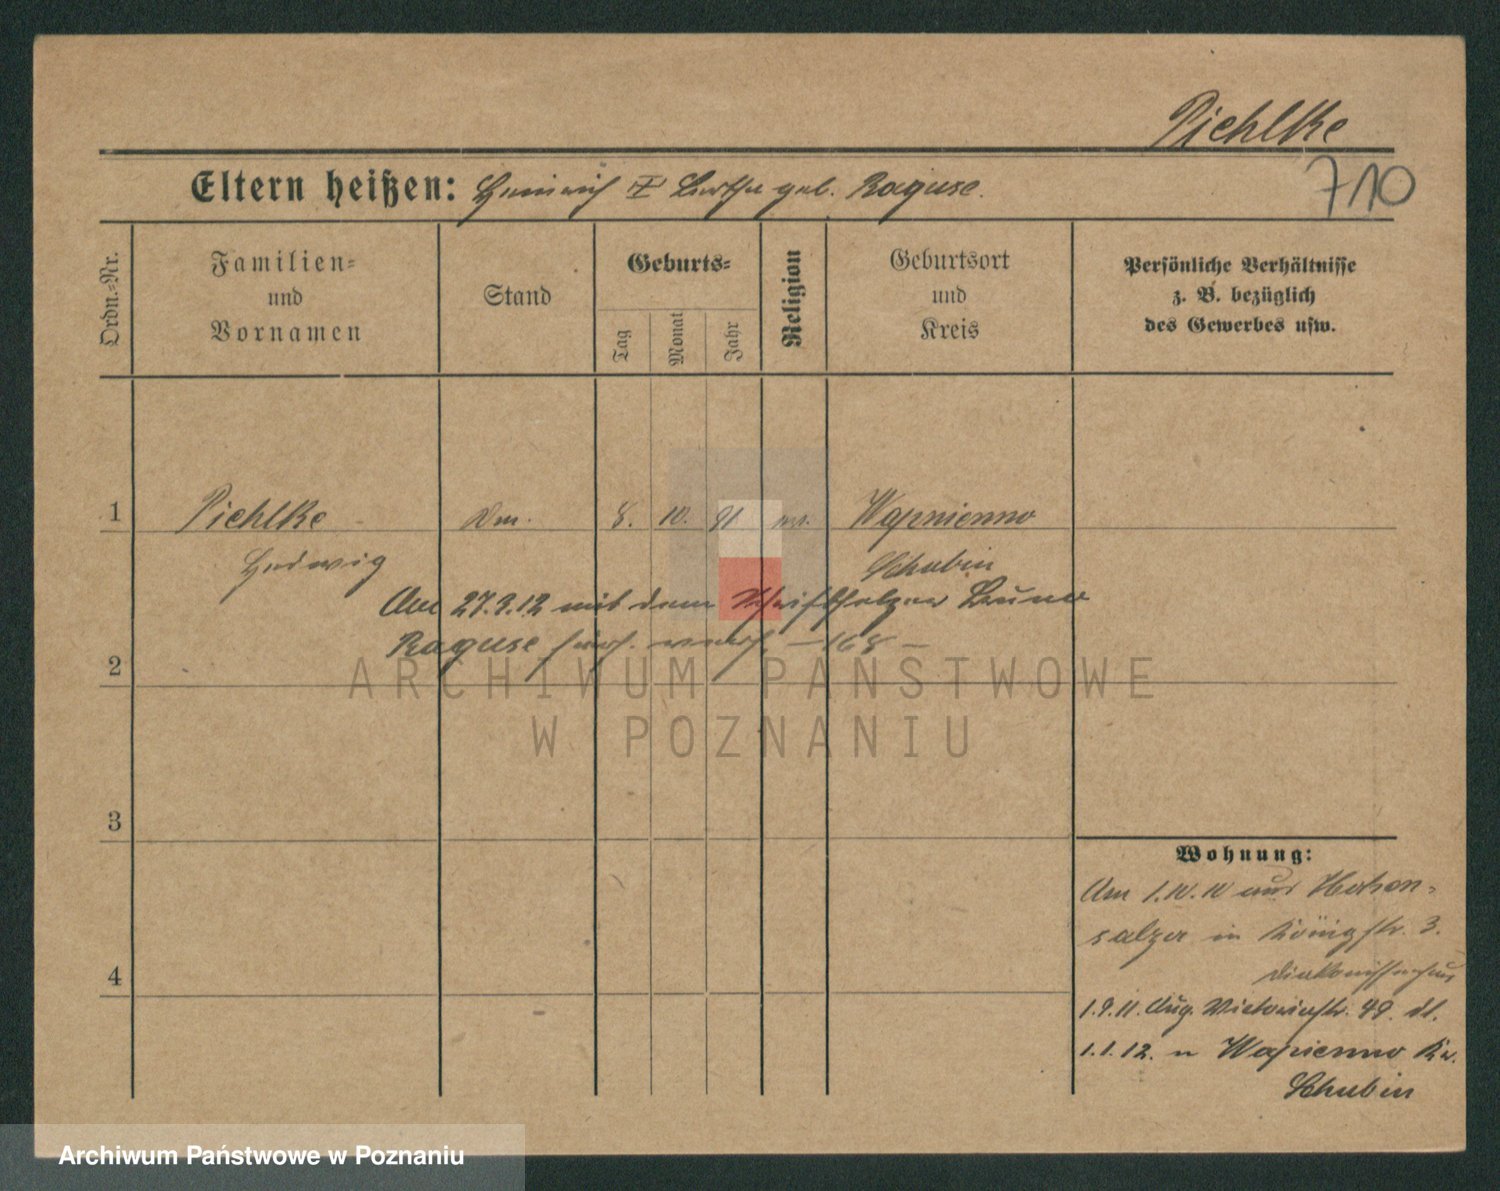 Piehlke
710
Eltern heißen: Heinrich u Bertha geb. Raguse.
Ordn.-Nr.
Familien- und Vornamen
Stand
Geburts-
Tag
Monat
Jahr
Religion
Geburtsort und Kreis
Persönliche Verhältnisse
z. B. bezüglich
des Gewerbes usw.
1 Piehlke 8. 10. 91 Wapnienno
Hedwig Schubin
Am 27.9.12 mit dem Bruno
Raguse - 168 -
2
3
4
Wohnung:
Am 1.10.10 aus Hohen-
salza in Königstr. 3.
1.9.11. Aug. Victoriastr. 49. dl.
1.1.12. n Wapienno Kr.
Schubin
ARCHIWUM PAŃSTWOWE
W POZNANIU
Archiwum Państwowe w Poznaniu